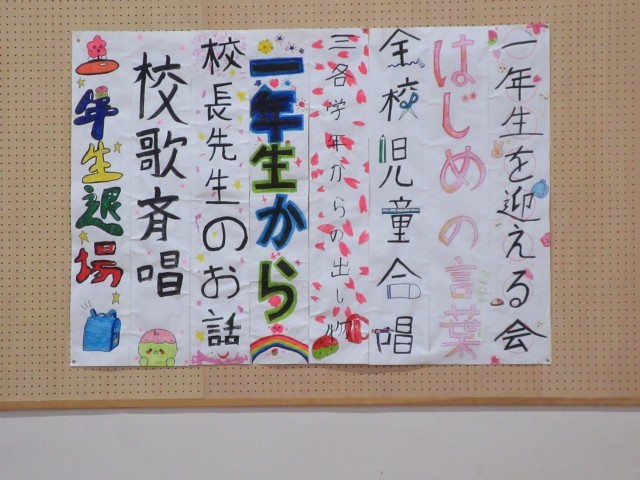 一年生を迎える会
はじめの言葉
全校児童合唱
三各学年からの出し物
一年生から
校長先生のお話
校歌斉唱
一年生退場